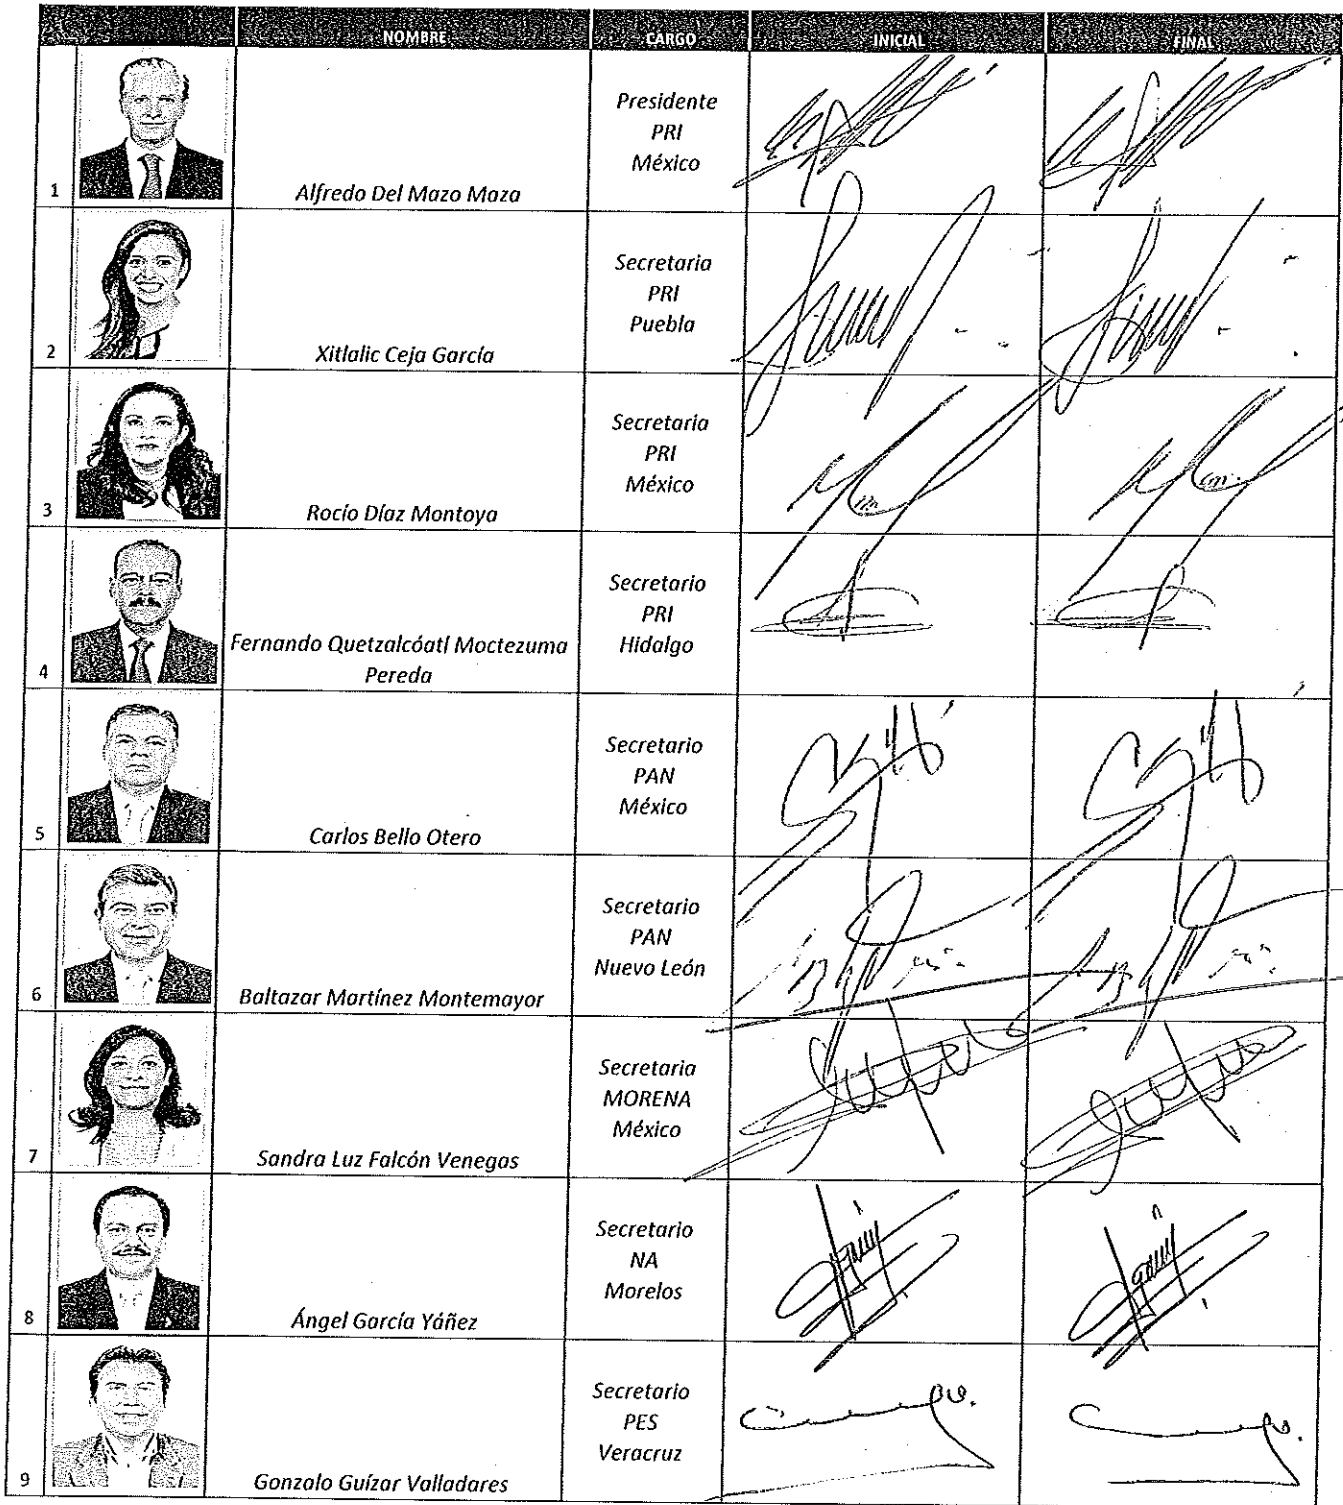 NOMBRE CARGO INICIAL FINAL
1 Alfredo Del Mazo Maza Presidente
PRI
México
2 Xitlalic Ceja García Secretaria
PRI
Puebla
3 Rocío Díaz Montoya Secretaria
PRI
México
4 Fernando Quetzalcóatl Moctezuma
Pereda Secretario
PRI
Hidalgo
5 Carlos Bello Otero Secretario
PAN
México
6 Baltazar Martínez Montemayor Secretario
PAN
Nuevo León
7 Sandra Luz Falcón Venegas Secretaria
MORENA
México
8 Ángel García Yáñez Secretario
NA
Morelos
9 Gonzalo Guízar Valladares Secretario
PES
Veracruz